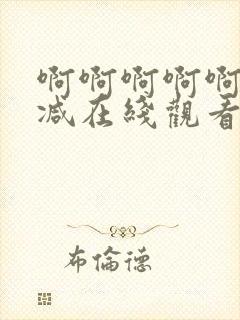 啊啊啊啊啊
减在綫觀看
布倫德